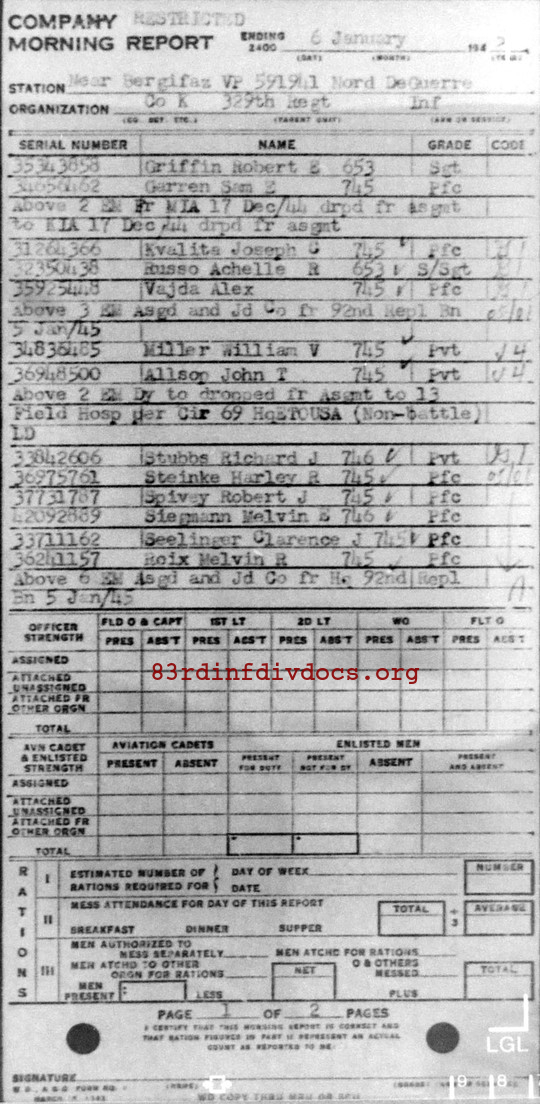 COMPANY RESTRICTED
MORNING REPORT ENDING 2400 6 January 194 5
(DAY) (MONTH)
STATION Near Bergifaz VP 591941 Nord DeGuerre
ORGANIZATION Co K 329th Regt Inf
(CO. DET. ETC.) (PARENT UNIT) (ARM OR SERVICE)
SERIAL NUMBER NAME GRADE CODE
35343858 Griffin Robert E 653 Sgt
34656462 Garren Sam E 745 Pfc
Above 2 EM Fr MIA 17 Dec/44 drpd fr asgmt
to KIA 17 Dec/44 drpd fr asgmt
31264366 Kvalita Joseph G 745 Pfc
32350438 Russo Achelle R 653 S/Sgt
35925448 Vajda Alex 745 Pfc
Above 3 EM Asgd and Jd Co fr 92nd Repl Bn
5 Jan/45
34836485 Miller William V 745 Pvt
36948500 Allsop John T 745 Pvt
Above 2 EM Dy to dropped fr Asgmt to 13
Field Hosp per Cir 69 HqETOUSA (Non-battle)
LD
33842606 Stubbs Richard J 746 Pvt
36975761 Steinke Harley R 745 Pfc
37731787 Spivey Robert J 745 Pfc
42092889 Siegmann Melvin E 746 Pfc
33711162 Seelinger Clarence J 745 Pfc
36241157 Roix Melvin R 745 Pfc
Above 6 EM Asgd and Jd Co fr Hq 92nd Repl
Bn 5 Jan/45
OFFICER STRENGTH FLD O & CAPT 1ST LT 2D LT WO FLT O
PRES ABS'T PRES ABS'T PRES ABS'T PRES ABS'T PRES ABS'T
ASSIGNED
ATTACHED UNASSIGNED
ATTACHED FR OTHER ORGN
TOTAL
83rdinfdivdocs.org
AVN CADET & ENLISTED STRENGTH AVIATION CADETS ENLISTED MEN
PRESENT ABSENT PRESENT FOR DUTY PRESENT NOT FOR DY ABSENT PRESENT AND ABSENT
ASSIGNED
ATTACHED UNASSIGNED
ATTACHED FR OTHER ORGN
TOTAL
RATIONS
I ESTIMATED NUMBER OF RATIONS REQUIRED FOR DAY OF WEEK DATE NUMBER
II MESS ATTENDANCE FOR DAY OF THIS REPORT
BREAKFAST DINNER SUPPER TOTAL ÷ 3 AVERAGE
III MEN AUTHORIZED TO MESS SEPARATELY MEN ATCHD FOR RATIONS
MEN ATCHD TO OTHER ORGN FOR RATIONS NET O & OTHERS MESSED TOTAL
MEN PRESENT LESS PLUS
PAGE 1 OF 2 PAGES
I CERTIFY THAT THIS MORNING REPORT IS CORRECT AND
THAT RATION FIGURES IN PART II REPRESENT AN ACTUAL
COUNT AS REPORTED TO ME.
LGL
SIGNATURE
W.D., A.G.O. FORM NO. 1 (NAME)
9 8